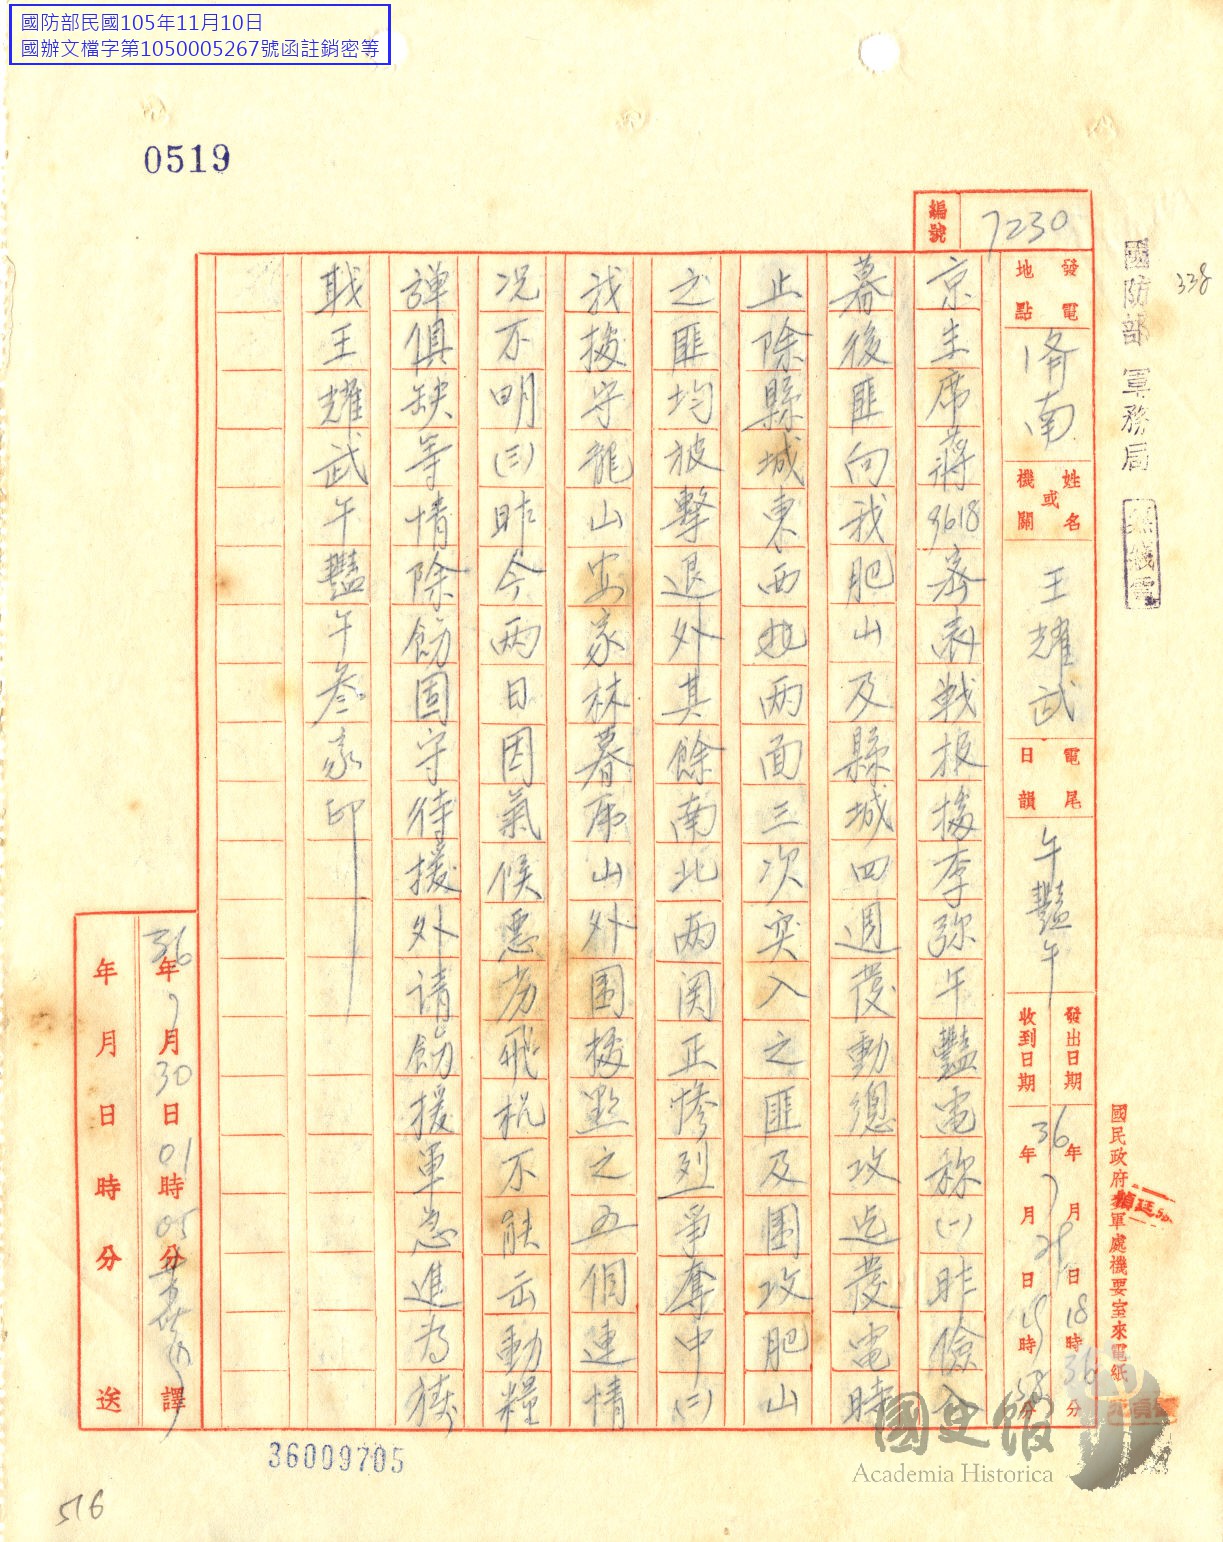 國防部民國105年11月10日
國辦文檔字第1050005267號函註銷密等
0519
338
國防部 軍務局
無線電
國民政府參軍處機要室來電紙
編號 7230
發電地點 濟南
姓名或機關 王耀武
電尾日韻 午豔午
發出日期 36年7月29日18時36分
收到日期 年月日19時分
京主席蔣9618密表戰報據李弥午豔電称(一)昨儉入
暮後匪向我肥山及縣城四週發動總攻迄發電時
止除縣城東西北兩面三次突入之匪及圍攻肥山
之匪均被擊退外其餘南北两関正慘烈爭奪中(二)
我據守龍山安家林暮南山外围據點之五個連情
况不明(三)昨今两日因氣候惡劣飛机不能出動糧
弹俱缺等情除飭固守待援外请飭援軍急進為禱
職王耀武午豔午叅家印
36年7月30日01時05分譯
年月日時分送
36009705
516
國史館
Academia Historica